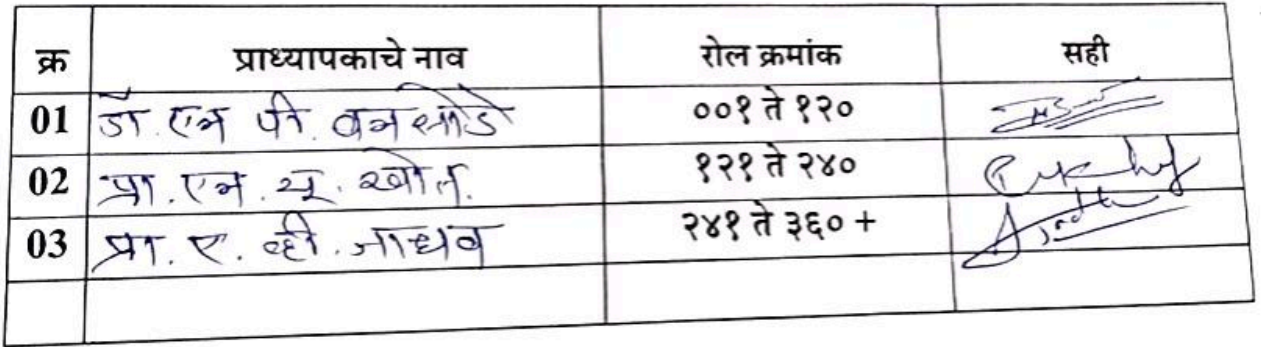 क्र प्राध्यापकाचे नाव रोल क्रमांक सही
01 डॉ. एम पी. बनसोडे ००१ ते १२०
02 प्रा. एम. यू. खोत. १२१ ते २४०
03 प्रा. ए. व्ही. जाधव २४१ ते ३६० +